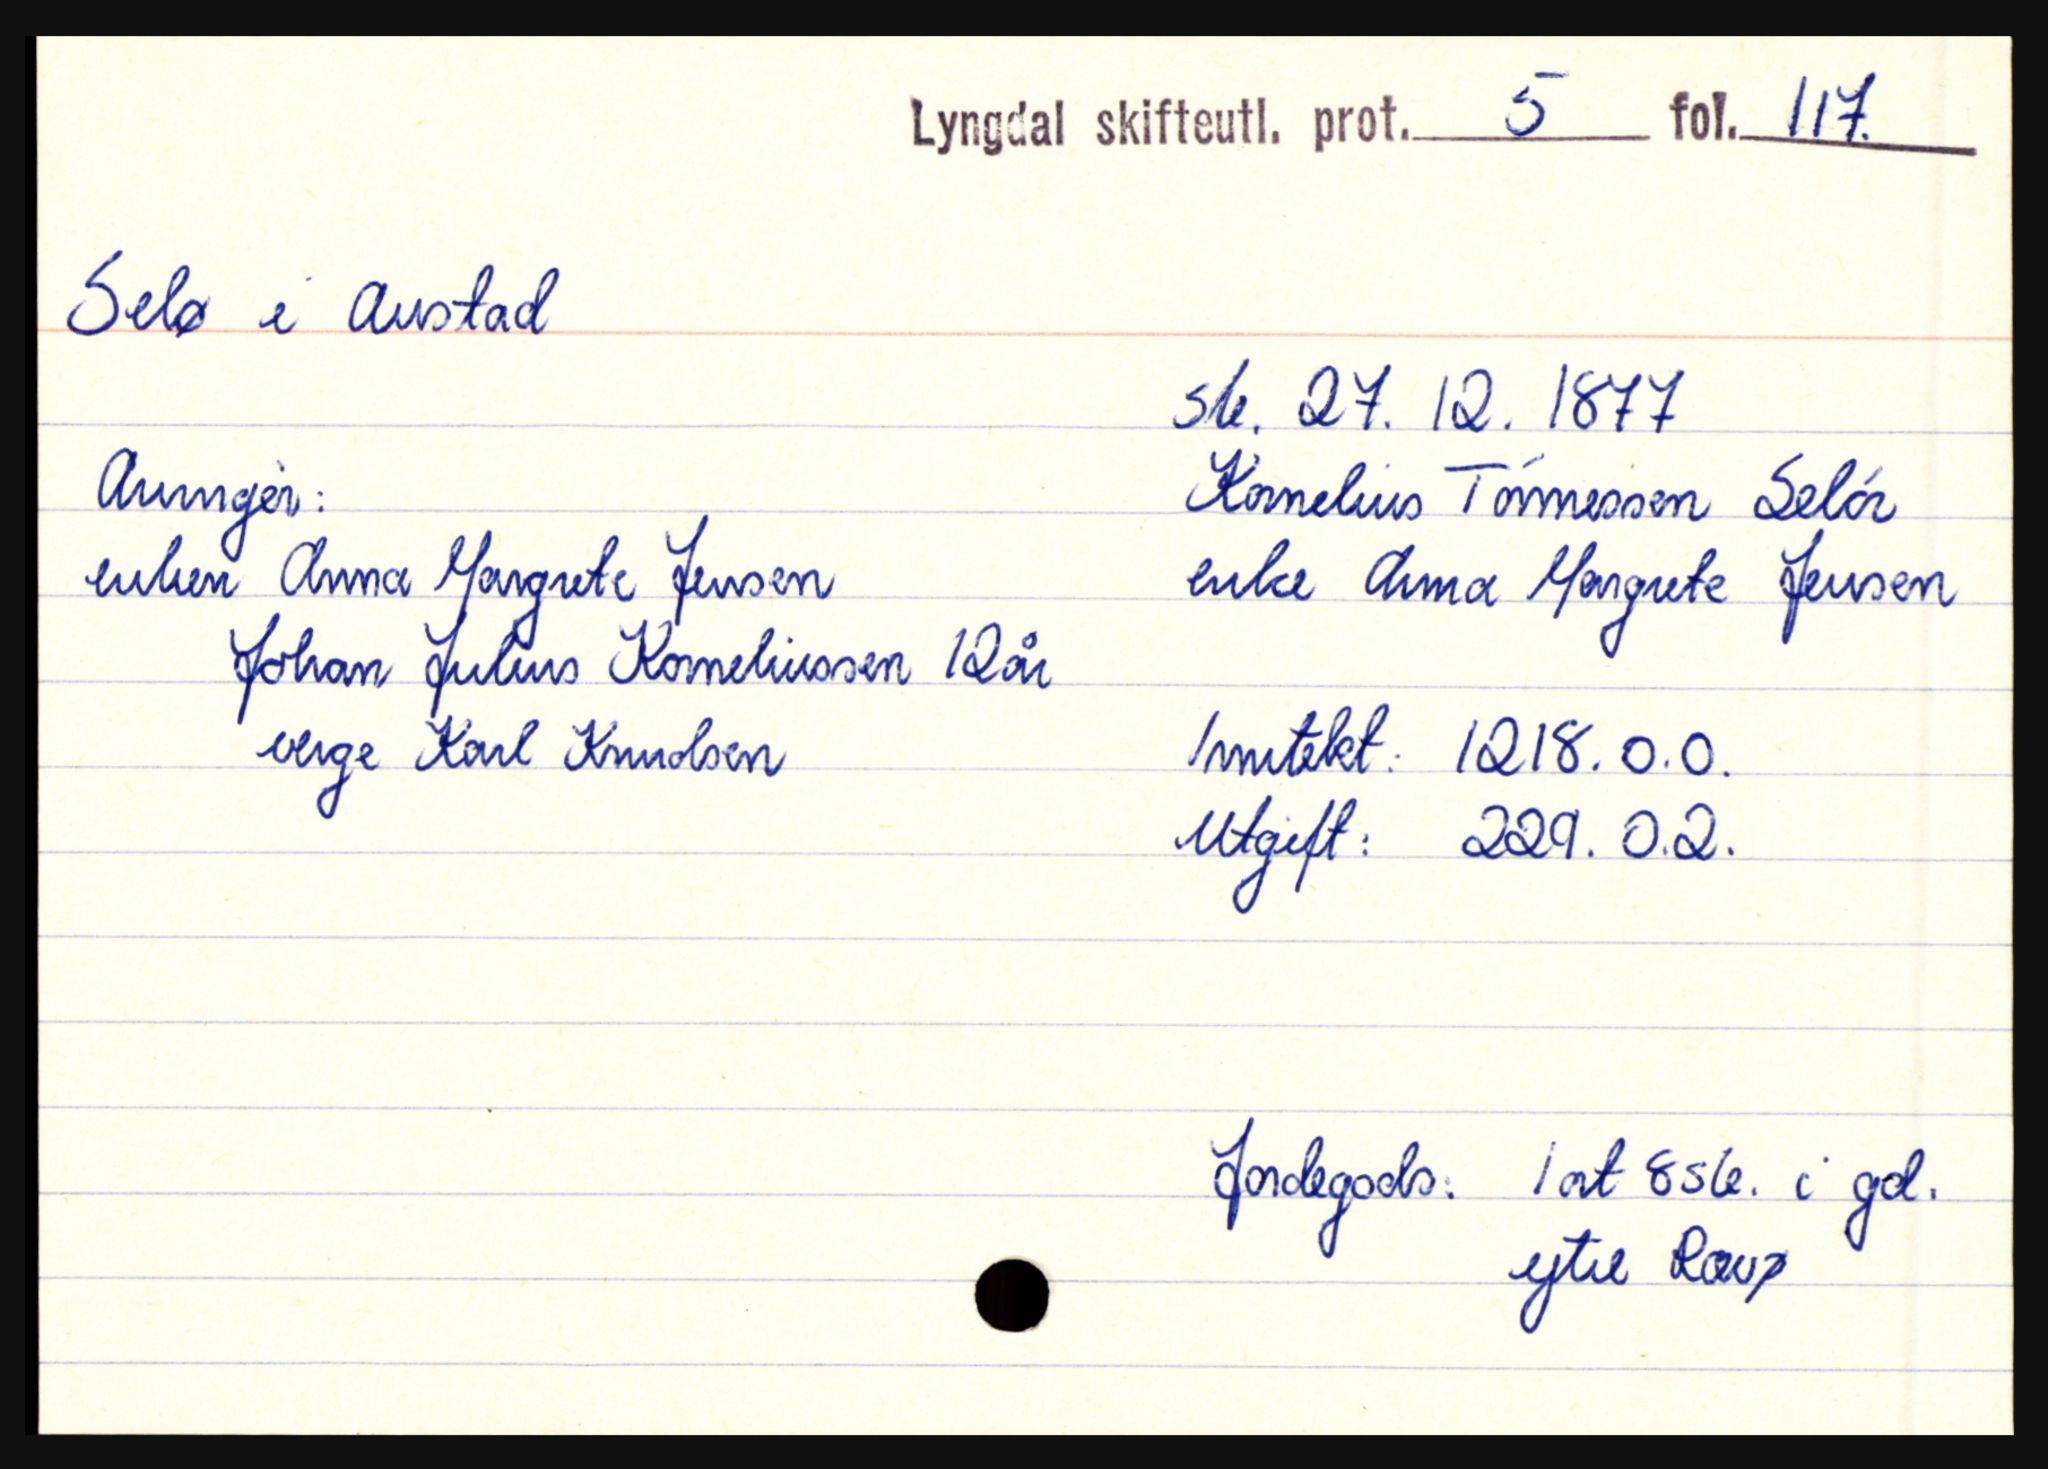 Lyngdal skifteutl. prot. 5 fol. 117.
Selø i Austad
sk. 27. 12. 1877
Kornelius Tónnessen Selór
enke Anna Margrete Jensen
Arvinger:
enken Anna Margrete Jensen
Johan Julius Korneliussen 12 år
verge Karl Knudsen
Inntekt: 1218. 0. 0.
Utgift: 229. 0. 2.
Jordegods: 1 ort 8 sk. i gd.
ytre